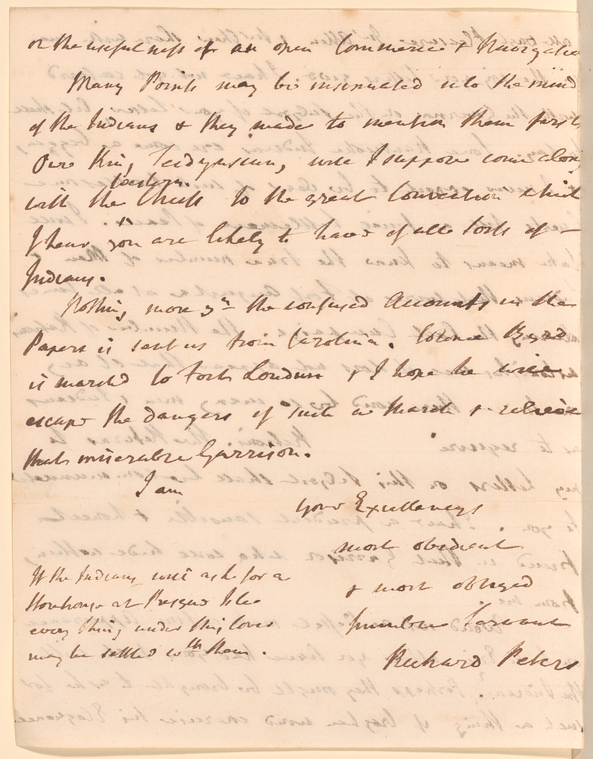 or the usefulness of an open Commerce & Navigation
Many Points may be insinuated into the mind
of the Indians & they made to mention them first
Our King, Teedyuscung, will I suppose come along
western
with the Chiefs to the great Convention which
I hear you are likely to have of all sorts of
Indians.
Nothing more yn the confused Accounts in the
Papers is sent us from Carolina. Colonel Byrd
is march'd to Fort Loudon & I hope he will
escape the dangers of such a March & relieve
that miserable Garrison.
I am
your Excellencys
most obedient
& most obliged
humble Servant
Richard Peters
If the Indians will ask for a
Storehouse at Presqu Isle
every thing under this cover
may be settled wth them.